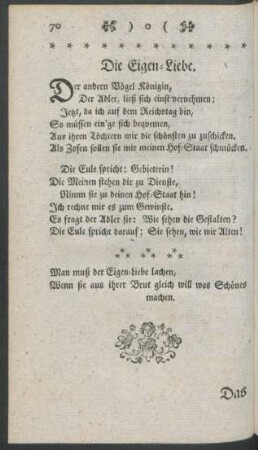 70 ) o (
Die Eigen-Liebe.
Der andern Vögel Königin,
Der Adler, ließ sich einst vernehmen:
Jetzt, da ich auf dem Reichstag bin,
So müssen ein'ge sich bequemen,
Aus ihren Töchtern mir die schönsten zu zuschicken.
Als Zofen sollen sie mir meinen Hof-Staat schmücken.
Die Eule spricht: Gebieterin!
Die Meinen stehen dir zu Dienste,
Nimm sie zu deinen Hof-Staat hin!
Ich rechne mir es zum Gewinste.
Es fragt der Adler sie: Wie sehen die Gestalten?
Die Eule spricht darauf: Sie sehen, wie wir Alten!
Man muß der Eigen-Liebe lachen,
Wenn sie aus ihrer Brut gleich will was Schönes
machen.
Das